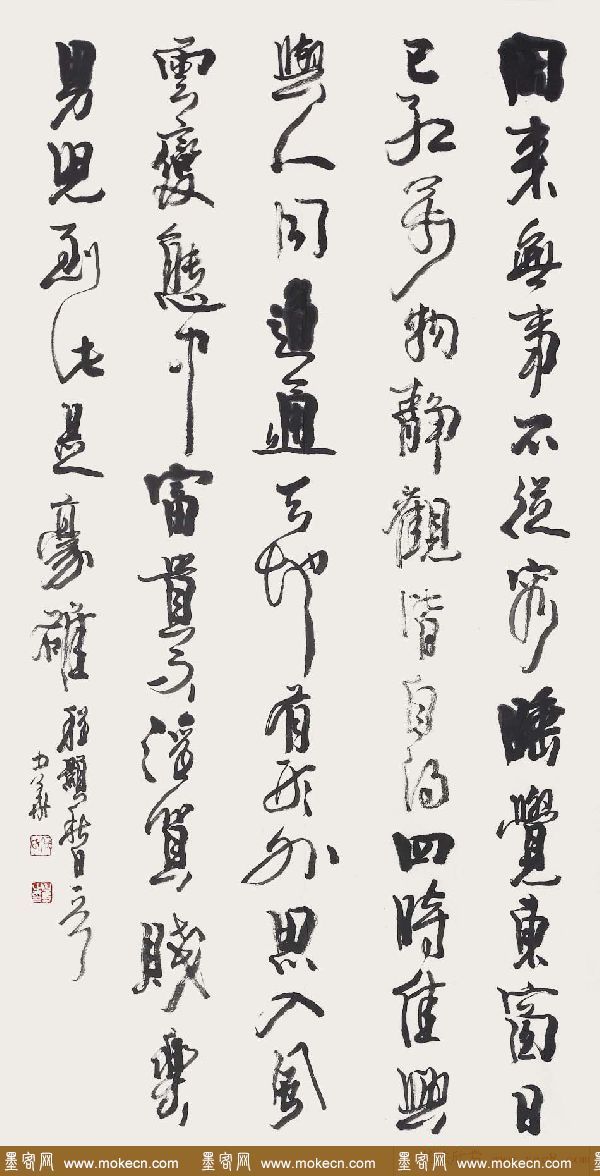 閒來無事不從容睡覺東窗日
已紅萬物靜觀皆自得四時佳興
與人同道通天地有形外思入風
雲變態中富貴不淫貧賤樂
男兒到此是豪雄
程顥秋日
墨客网 www.mokecn.com 墨客网 www.mokecn.com 墨客网 www.mokecn.com